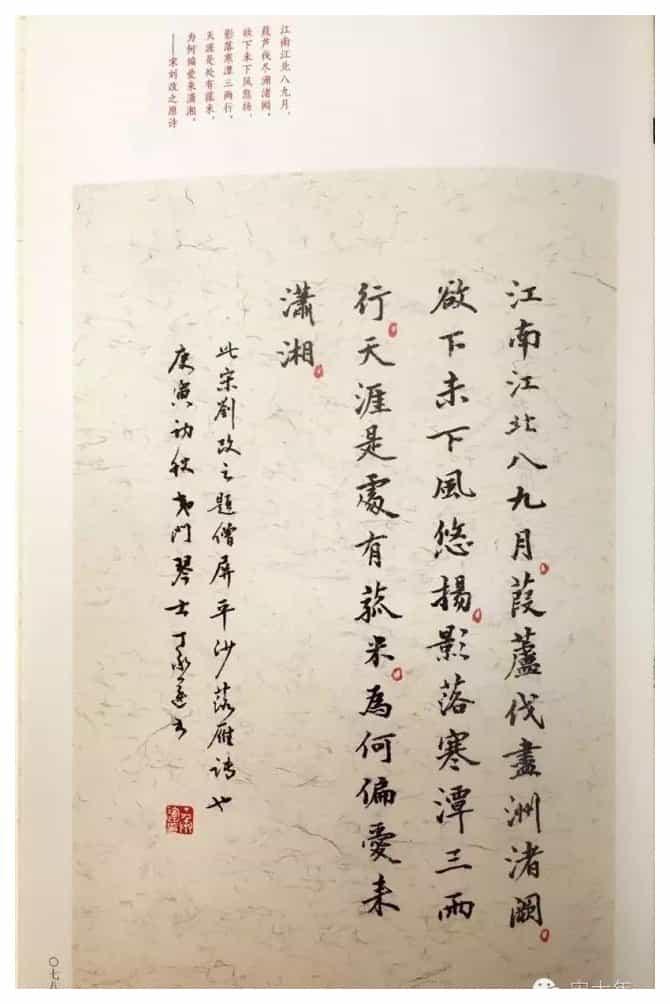 江南江北八九月，
葭芦伐尽洲渚阔，
欲下未下风悠扬，
影落寒潭三两行，
天涯是处有菰米，
为何偏爱来潇湘。
——宋刘改之原诗
江南江北八九月葭蘆伐盡洲渚闊
欲下未下風悠揚影落寒潭三兩
行天涯是處有菰米為何偏愛来
瀟湘
此宋劉改之題僧屏平沙落雁詩也
庚寅初秋 門琴士丁承運書
〇七八